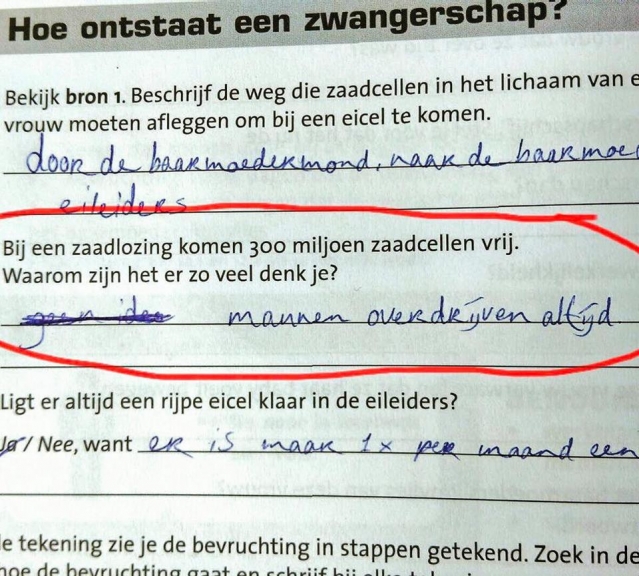 Hoe ontstaat een zwangerschap?
Bekijk bron 1. Beschrijf de weg die zaadcellen in het lichaam van e
vrouw moeten afleggen om bij een eicel te komen.
door de baarmoedermond, naar de baarmoe
eileiders
Bij een zaadlozing komen 300 miljoen zaadcellen vrij.
Waarom zijn het er zo veel denk je?
geen idee mannen overdrijven altijd
Ligt er altijd een rijpe eicel klaar in de eileiders?
Ja / Nee, want er is maar 1x per maand een
le tekening zie je de bevruchting in stappen getekend. Zoek in de
hoe de bevruchting gaat en schrijf bij elke